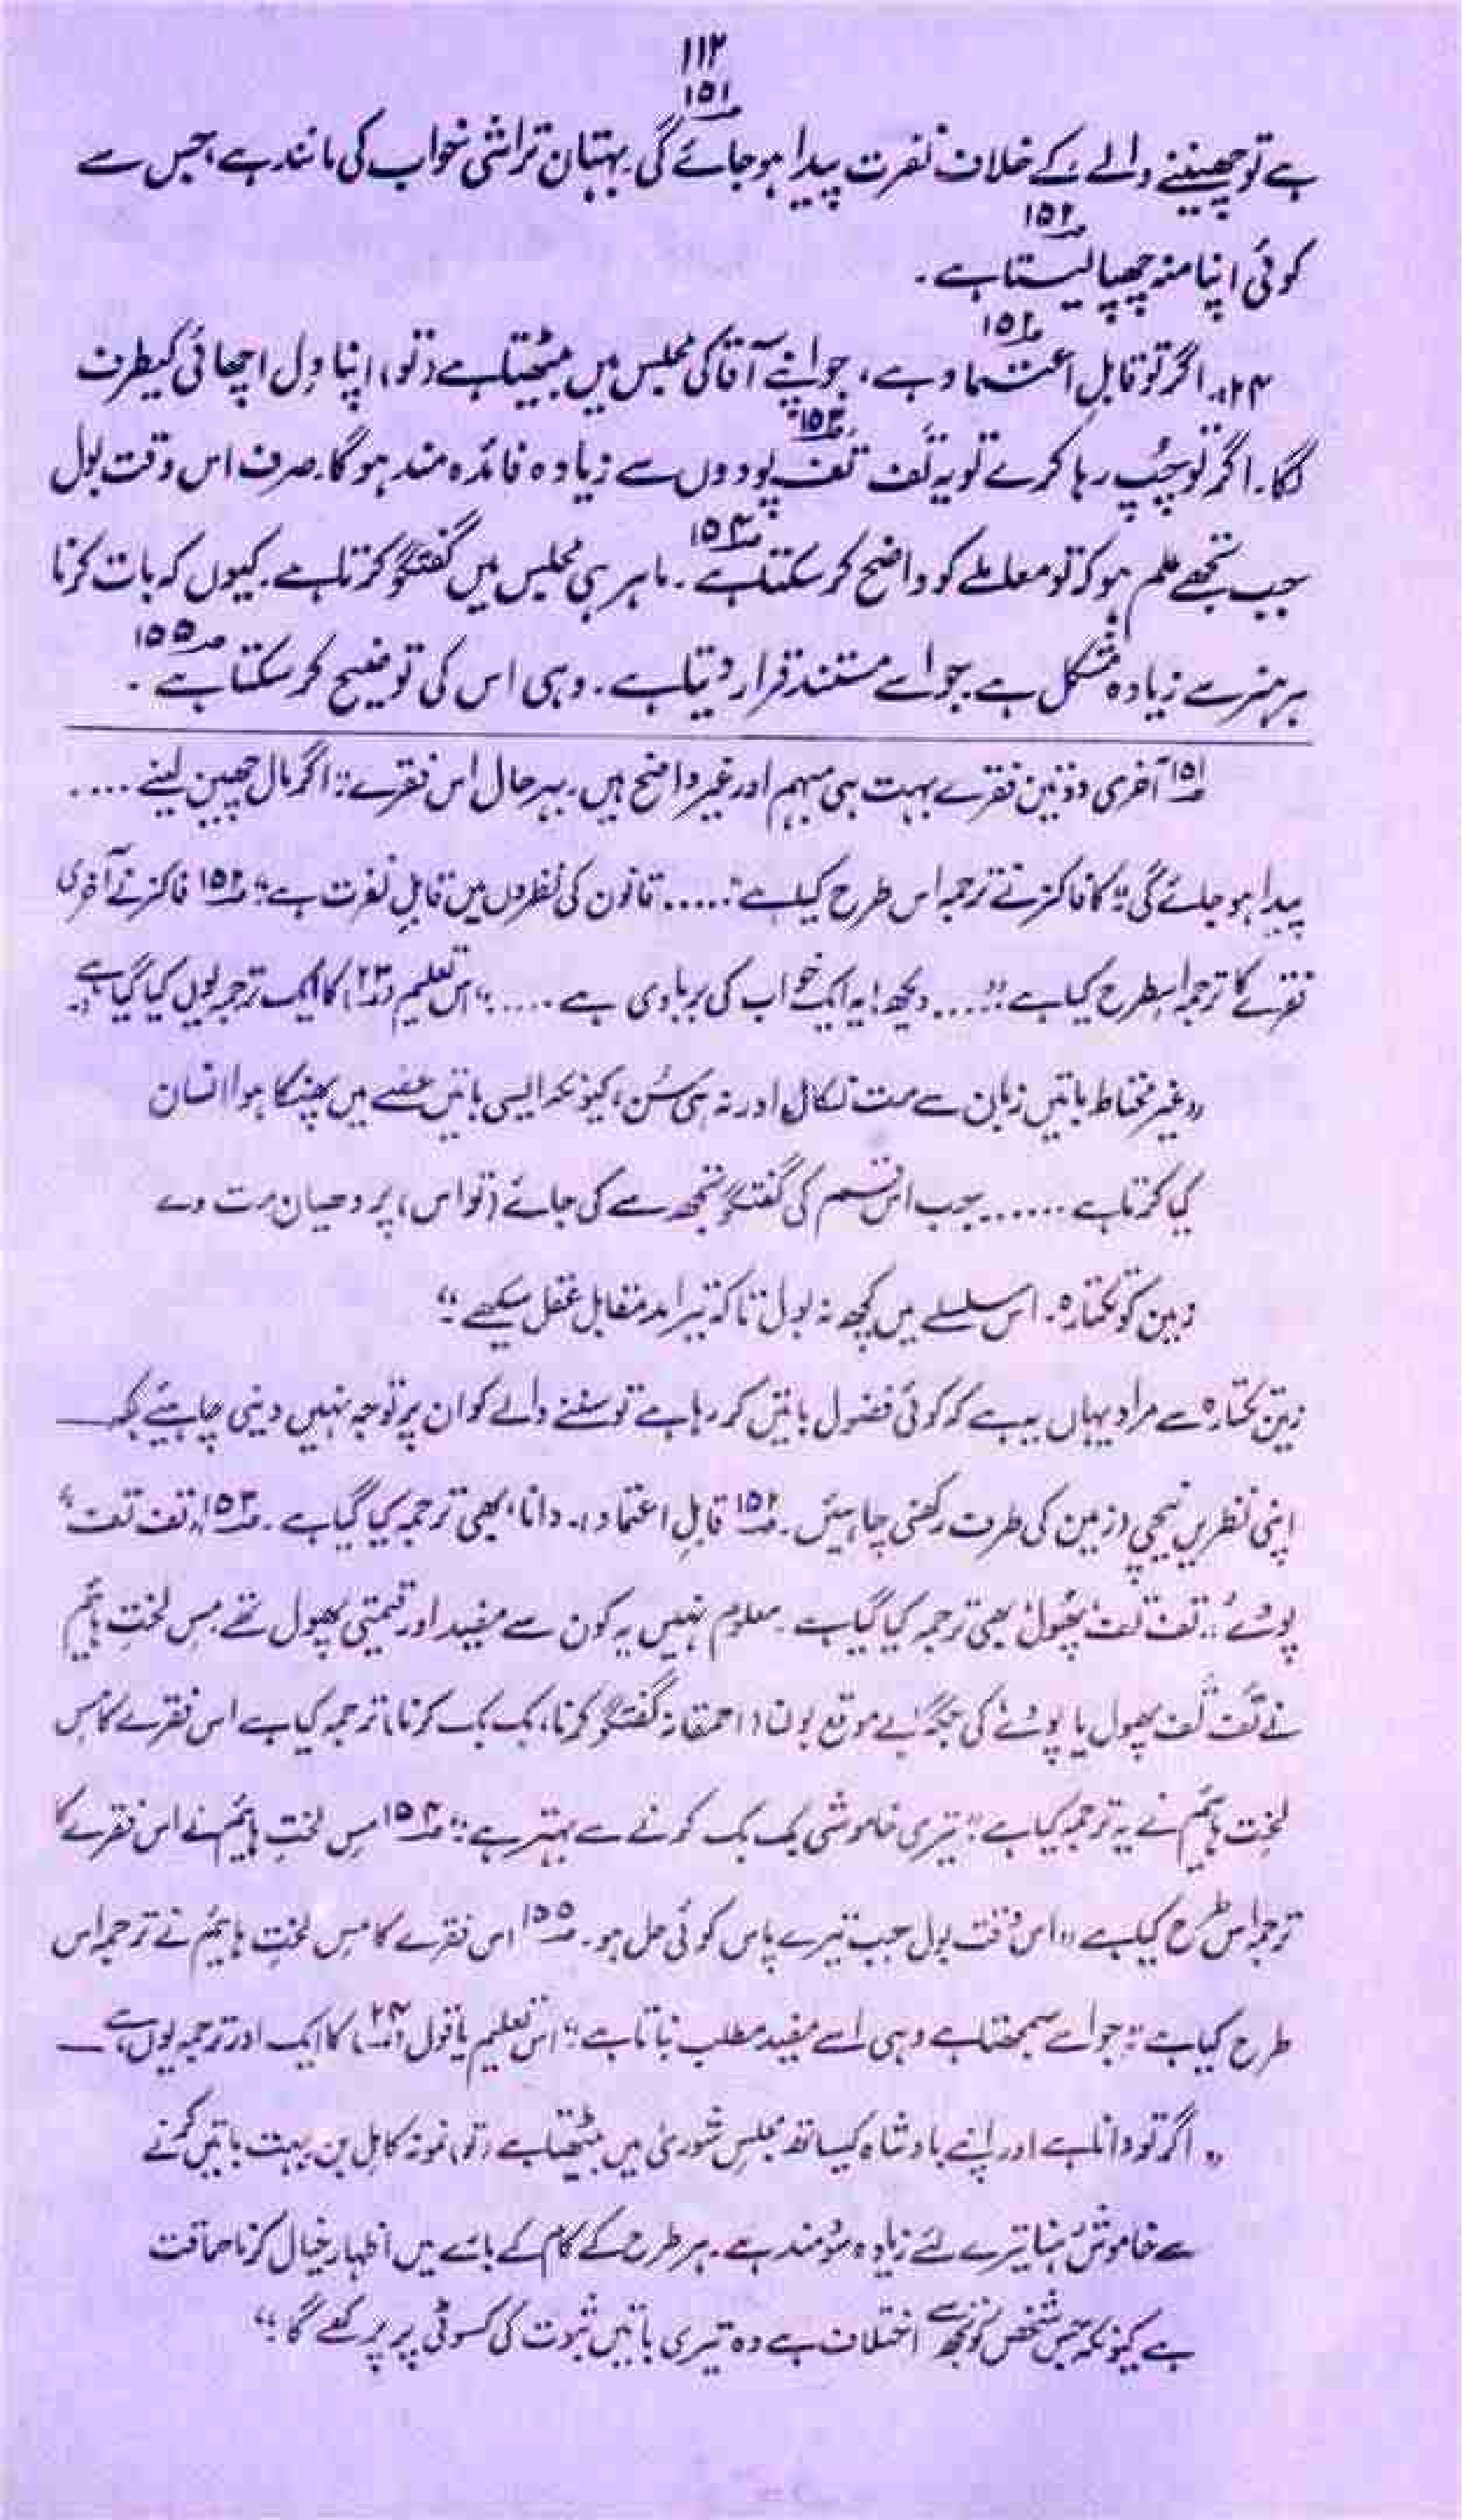 ۱۱۲
ہے تو چھیننے والے کے خلاف نفرت پیدا ہو جائے گی۔ ؁۱۵۱ بہتان تراشی خواب کی مانند ہے، جس سے
کوئی اپنا منہ چھپا لیتا ہے۔ ؁۱۵۲
۲۴۔ اگر تو قابلِ اعتماد ہے، ؁۱۵۲ جو اپنے آقا کی مجلس میں بیٹھتا ہے (تو) اپنا دِل اچھائی کیطرف
لگا۔ اگر تو چُپ رہا کرے تو یہ تَف تَف ؁۱۵۳ پودوں سے زیادہ فائدہ مند ہو گا۔ صرف اس وقت بول
جب تجھے علم ہو کہ تو معاملے کو واضح کر سکتا ہے ؁۱۵۴۔ ماہر ہی مجلس میں گفتگو کرتا ہے۔ کیوں کہ بات کرنا
ہر ہنر سے زیادہ مشکل ہے۔ جو اسے مستند قرار دیتا ہے۔ وہی اس کی توضیح کر سکتا ہے ؁۱۵۵۔
؁۱۵۱ آخری دو تین فقرے بہت ہی مبہم اور غیر واضح ہیں۔ بہر حال اس فقرے: "اگر مال چھین لینے ....
پیدا ہو جائے گی" کا فاکنر نے ترجمہ اس طرح کیا ہے "..... قانون کی نظروں میں قابلِ نفرت ہے" ؁۱۵۲ فاکنر نے آخری
فقرے کا ترجمہ اسطرح کیا ہے: ".... دیکھ! یہ ایک خواب کی بربادی ہے ....." اس تعلیم (؁۲۳) کا ایک ترجمہ یوں کیا گیا ہے
"غیر محتاط باتیں زبان سے مت نکال اور نہ ہی سُن، کیونکہ ایسی باتیں غصے میں پھنکا ہوا انسان
کیا کرتا ہے ...... جب اس قسم کی گفتگو تجھ سے کی جائے (تو اس) پر دھیان مت دے
زمین کو تکتا رہ۔ اس سلسلے میں کچھ نہ بول تا کہ تیرا مد مقابل عقل سیکھے"
زمین تکتا رہ سے مراد یہاں یہ ہے کہ کوئی فضول باتیں کر رہا ہے تو سننے والے کو ان پر توجہ نہیں دینی چاہیئے بلکہ
اپنی نظریں نیچی (زمین کی طرف) رکھنی چاہئیں۔ ؁۱۵۲ قابلِ اعتماد:۔ دانا، بھی ترجمہ کیا گیا ہے۔ ؁۱۵۳ "تف تف"
پودے:۔ تف تف پھُول بھی ترجمہ کیا گیا ہے۔ معلوم نہیں یہ کون سے مفید اور قیمتی پھول تھے۔ مس لخت ہائیم
نے تَف تَف پھول یا پودے کی جگہ بے موقع بولنا (احمقانہ گفتگو کرنا، بک بک کرنا) ترجمہ کیا ہے اس فقرے کا مس
لخت ہائیم نے یہ ترجمہ کیا ہے: "تیری خاموشی بک بک کرنے سے بہتر ہے" ؁۱۵۴ مس لخت ہائیم نے اس فقرے کا
ترجمہ اس طرح کیا ہے "اس وقت بول جب تیرے پاس کوئی حل ہو۔ ؁۱۵۵ اس فقرے کا مس لخت ہائیم نے ترجمہ اس
طرح کیا ہے: "جو اسے سمجھتا ہے وہی اسے مفید مطلب بناتا ہے" اس تعلیم یا قول (؁۲۴) کا ایک اور ترجمہ یوں ہے
"اگر تو دانا ہے اور اپنے بادشاہ کیساتھ مجلس شوریٰ میں بیٹھتا ہے (تو) نمونہ کامل بن۔ بہت باتیں کرنے
سے خاموش رہنا تیرے لئے زیادہ سُودمند ہے۔ ہر طرح کے کام کے بارے میں اظہار خیال کرنا حماقت
ہے کیونکہ جس شخص کو تجھ سے اختلاف ہے وہ تیری باتیں ثبوت کی کسوٹی پر پرکھے گا"